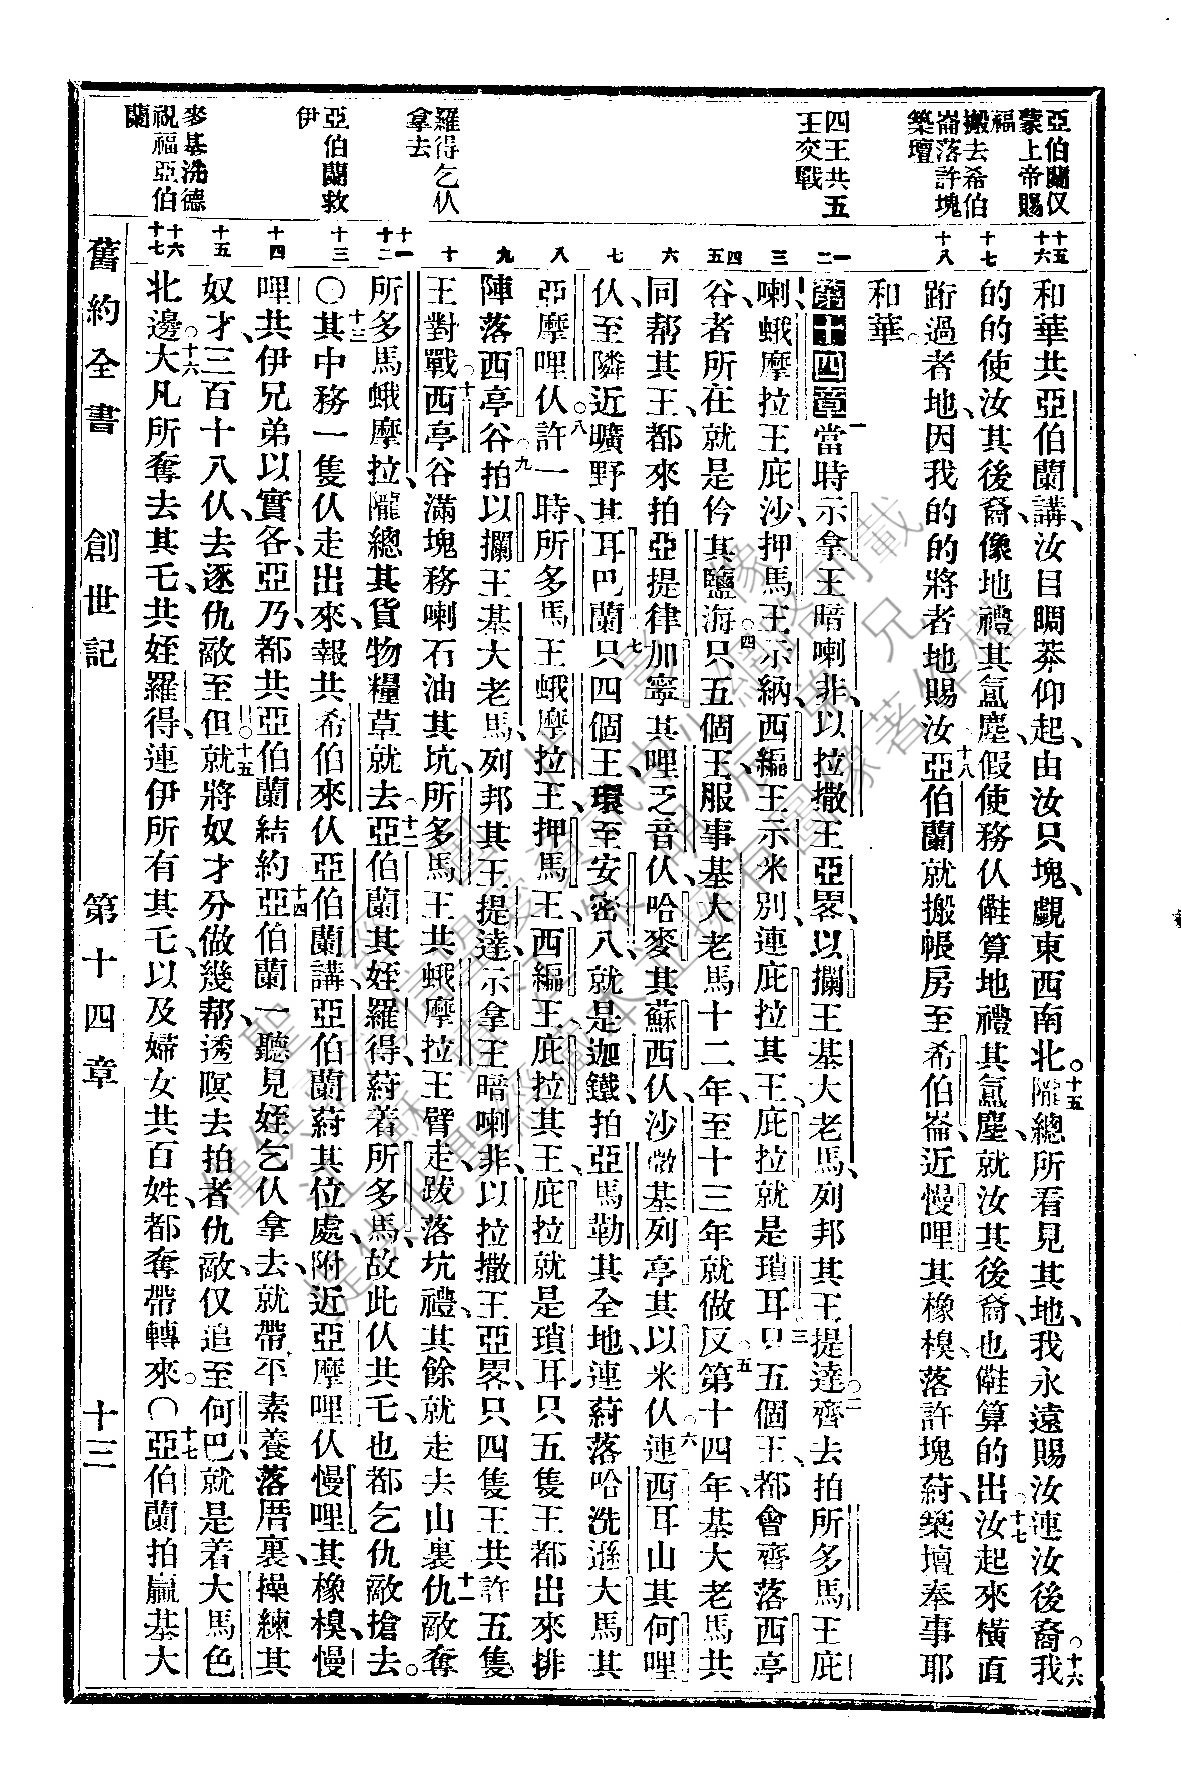 亞伯蘭仅
蒙上帝賜
福
搬去希伯
崙落許塊
築壇
四王共五
王交戰
羅得乞仈
拿去
亞伯蘭救
伊
麥基洗德
祝福亞伯
蘭
和華共亞伯蘭講、汝目睭莽仰起、由汝只塊、覷東西南北。十五隴總所看見其地、我永遠賜汝連汝後裔。十六我
的的使汝其後裔、像地禮其氳塵、假使務仈𠆧算地禮其氳塵、就汝其後裔也𠆧算的出。十七汝起來橫直
跨過者地、因我的的將者地賜汝。十八亞伯蘭就搬帳房至希伯崙、近慢哩其橡模、落許塊、蒔築壇奉事耶
和華。
第十四章
一當時示拿王暗喇非、以拉撒王亞畧、以攔王基大老馬、列邦其王提達、二齊去拍所多馬王庇
喇、蛾摩拉王庇沙、押馬王示納、西編王示米別、連庇拉其王、庇拉就是瑣耳。三只五個王、都會齊落西亭
谷、者所在就是仱其鹽海。四只五個王服事基大老馬十二年、至十三年就做反。五第十四年、基大老馬共
同帮其王、都來拍亞提律加寧其哩乏音仈、哈麥其蘇西仈、沙微基列亭其以米仈、六連西耳山其何哩
仈、至隣近曠野其耳巴蘭。七只四個王、環至安密八、就是迦鐵、拍亞馬勒其全地、連蒔落哈洗遜大馬其
亞摩哩仈。八許一時、所多馬王、蛾摩拉王、押馬王、西編王、庇拉其王、庇拉就是瑣耳、只五隻王都出來排
陣落西亭谷、九拍以攔王基大老馬、列邦其王提達、示拿王暗喇非、以拉撒王亞畧、只四隻王共許五隻
王對戰。十西亭谷滿塊務喇石油其坑、所多馬王共蛾摩拉王臂走、跋落坑禮、其餘就走去山裏。十一仇敵奪
所多馬蛾摩拉、隴總其貨物糧草就去。十二亞伯蘭其姪羅得、蒔着所多馬、故此仈共乇、也都乞仇敵搶去。
〇十三其中務一隻仈走出來、報共希伯來仈亞伯蘭講、亞伯蘭蒔其位處、附近亞摩哩仈慢哩其橡模、慢
哩共伊兄弟以實各、亞乃、都共亞伯蘭結約。十四亞伯蘭一聽見姪乞仈拿去、就帶平素養落厝裏、操練其
奴才三百十八仈、去逐仇敵至但、〇十五就將奴才分做幾帮、透暝去拍者仇敵、仅追至何巴、就是着大馬色
北邊。十六大凡所奪去其乇、共姪羅得、連伊所有其乇、以及婦女共百姓、都奪帶轉來。〇十七亞伯蘭拍贏基大
舊約全書　創世記　第十四章　十三